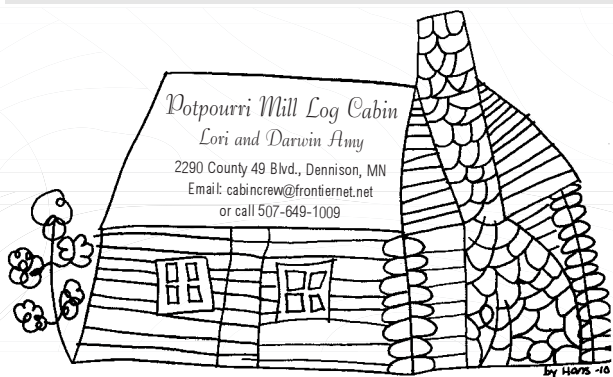 Potpourri Mill Log Cabin
Lori and Darwin Amy
2290 County 49 Blvd., Dennison, MN
Email: cabincrew@frontiernet.net
or call 507-649-1009
by Hans -10